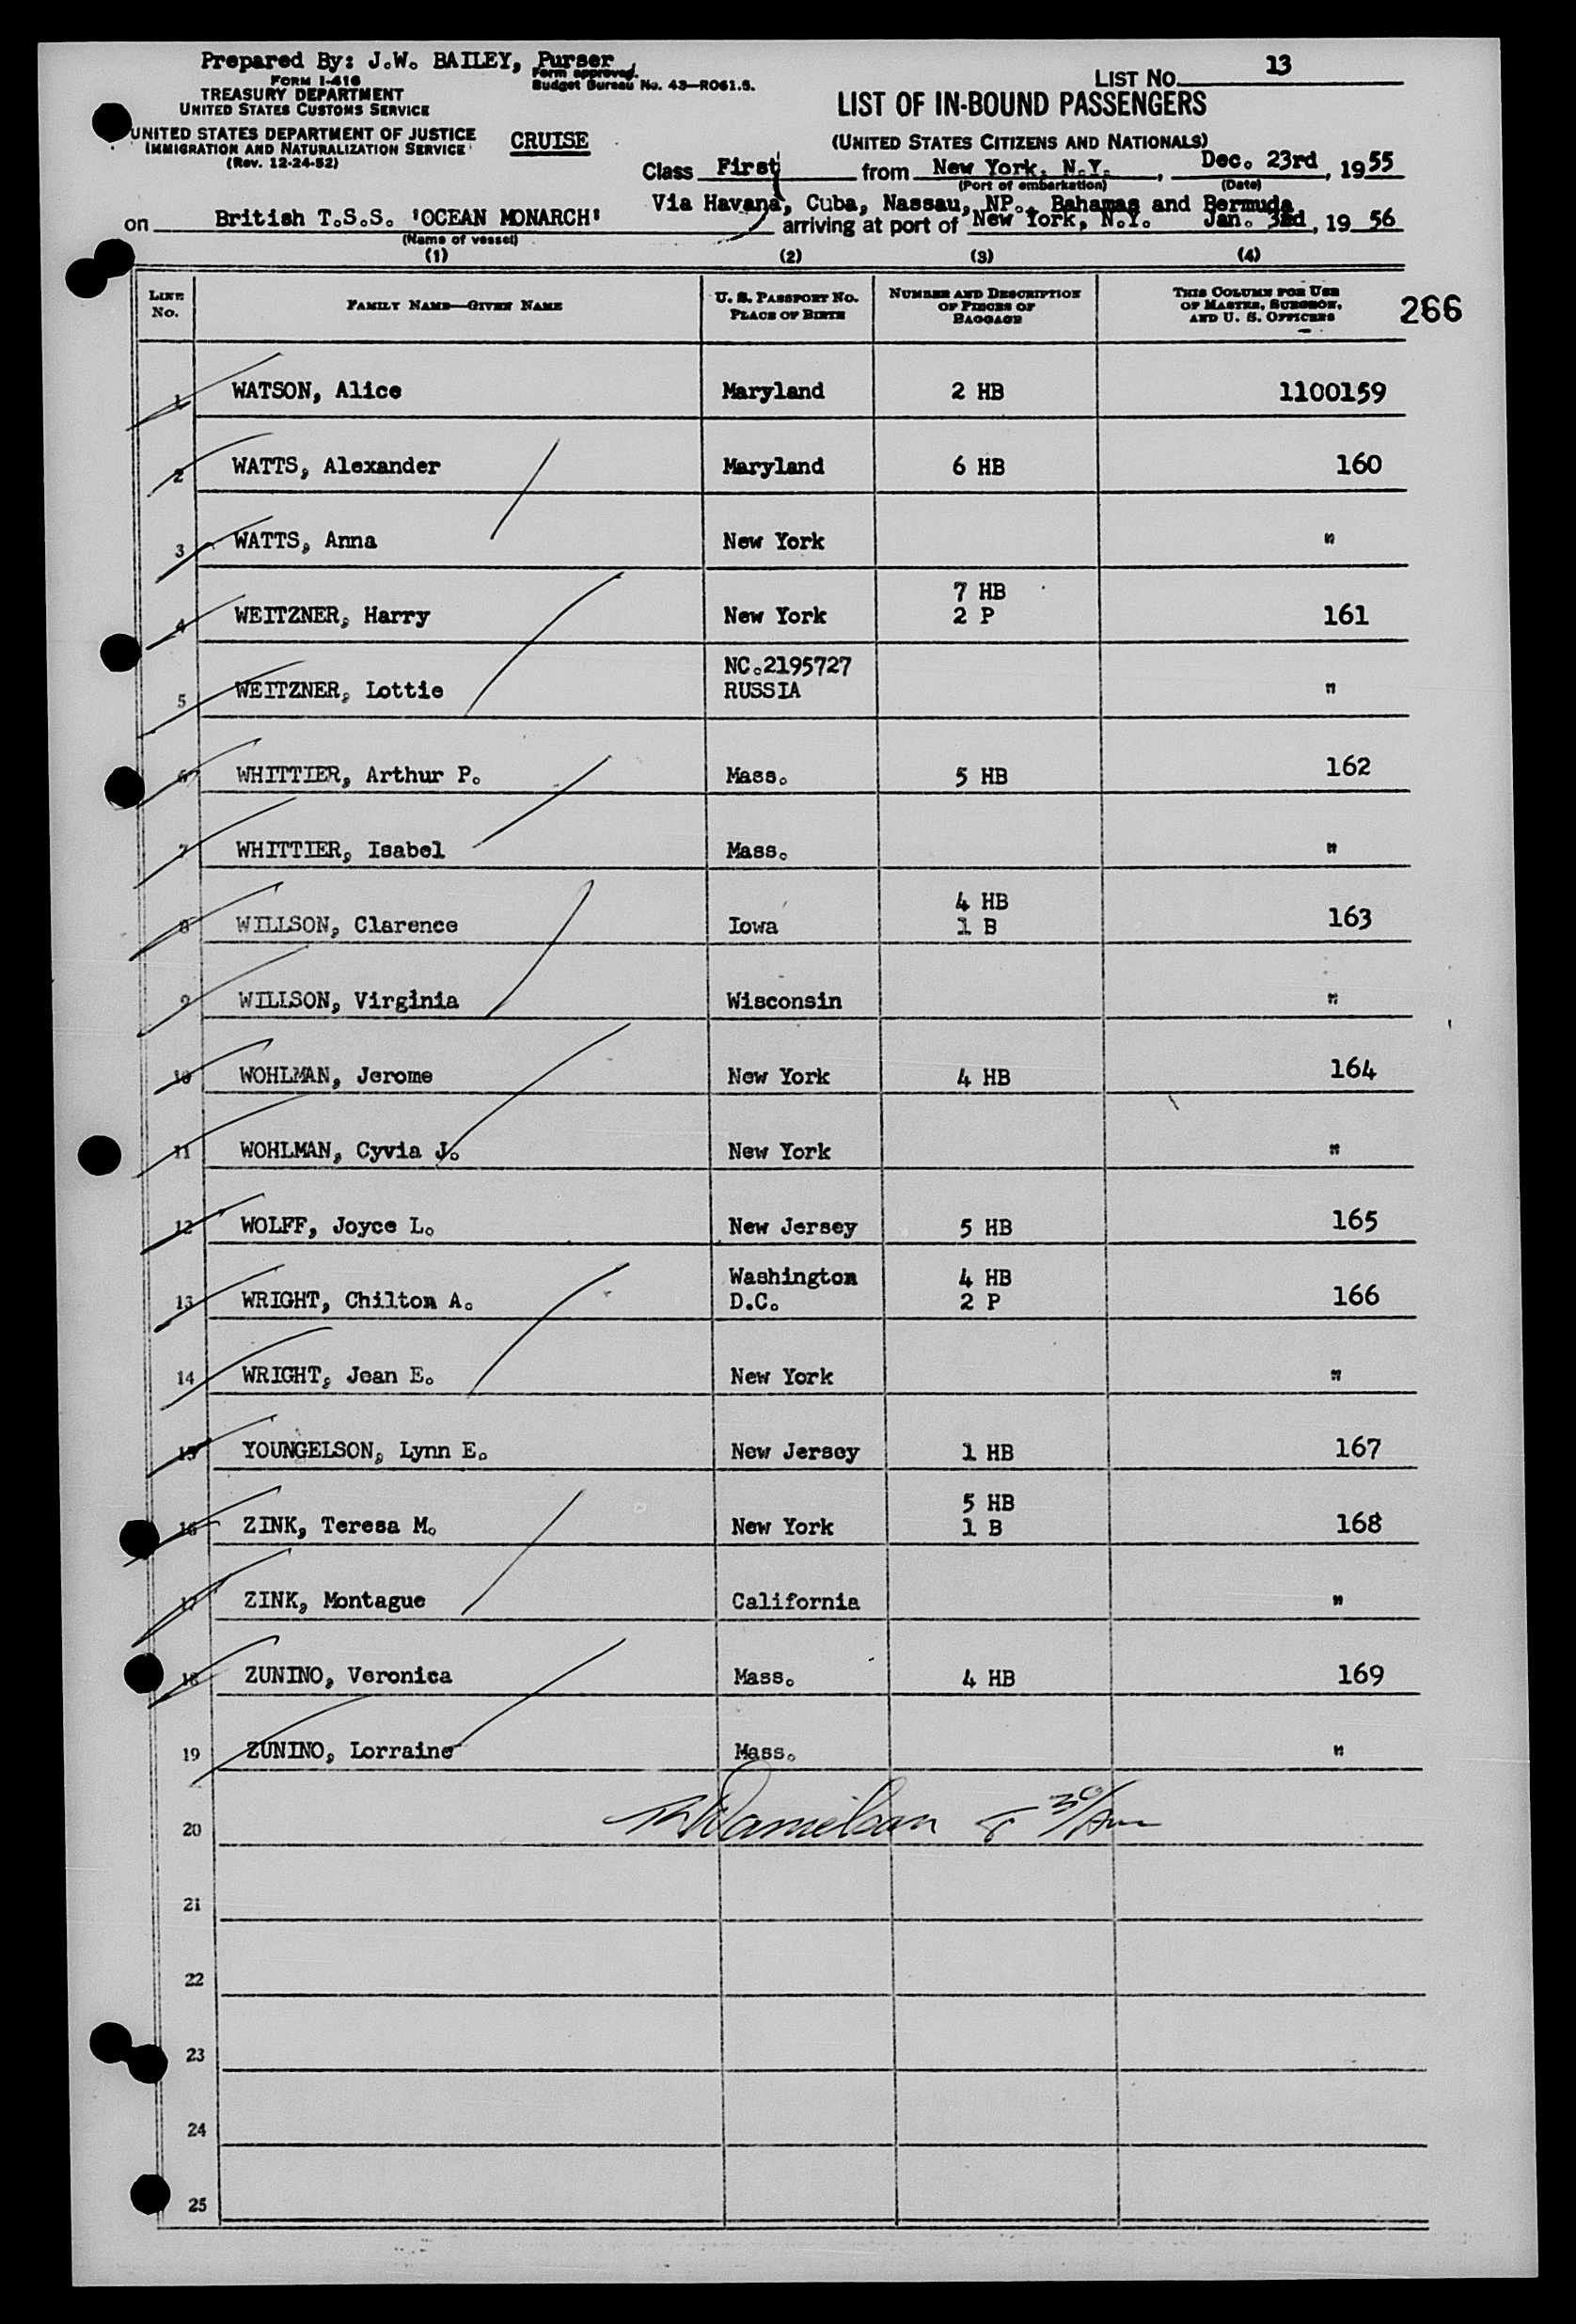 Prepared By: J.W. BAILEY, Purser
Form approved.
Budget Bureau No. 43—RO61.5.
FORM I-416
TREASURY DEPARTMENT
UNITED STATES CUSTOMS SERVICE
UNITED STATES DEPARTMENT OF JUSTICE
IMMIGRATION AND NATURALIZATION SERVICE
(Rev. 12-24-52)
CRUISE
LIST No. 13
LIST OF IN-BOUND PASSENGERS
(UNITED STATES CITIZENS AND NATIONALS)
Class First from New York, N.Y., Dec. 23rd, 1955
(Port of embarkation) (Date)
Via Havana, Cuba, Nassau, NP., Bahamas and Bermuda
on British T.S.S. 'OCEAN MONARCH' arriving at port of New York, N.Y. Jan. 3rd, 19 56
(Name of vessel)
(1) (2) (3) (4)
LINE No. FAMILY NAME—GIVEN NAME U. S. PASSPORT NO. PLACE OF BIRTH NUMBER AND DESCRIPTION OF PIECES OF BAGGAGE THIS COLUMN FOR USE OF MASTER, SURGEON, AND U. S. OFFICERS 266
1 WATSON, Alice Maryland 2 HB 1100159
2 WATTS, Alexander Maryland 6 HB 160
3 WATTS, Anna New York "
7 HB
4 WEITZNER, Harry New York 2 P 161
NC.2195727
5 WEITZNER, Lottie RUSSIA "
6 WHITTIER, Arthur P. Mass. 5 HB 162
7 WHITTIER, Isabel Mass. "
4 HB
8 WILLSON, Clarence Iowa 1 B 163
9 WILLSON, Virginia Wisconsin "
10 WOHLMAN, Jerome New York 4 HB 164
11 WOHLMAN, Cyvia J. New York "
12 WOLFF, Joyce L. New Jersey 5 HB 165
Washington 4 HB
13 WRIGHT, Chilton A. D.C. 2 P 166
14 WRIGHT, Jean E. New York "
15 YOUNGELSON, Lynn E. New Jersey 1 HB 167
5 HB
16 ZINK, Teresa M. New York 1 B 168
17 ZINK, Montague California "
18 ZUNINO, Veronica Mass. 4 HB 169
19 ZUNINO, Lorraine Mass. "
20
21
22
23
24
25